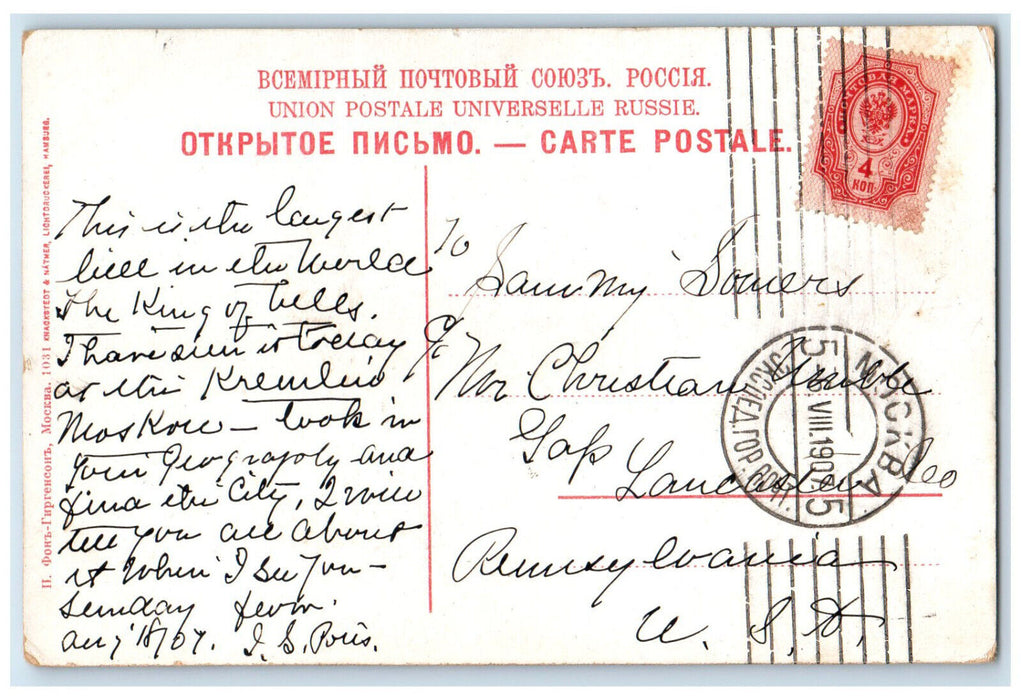 ВСЕМІРНЫЙ ПОЧТОВЫЙ СОЮЗЪ. РОССІЯ.
UNION POSTALE UNIVERSELLE RUSSIE.
ОТКРЫТОЕ ПИСЬМО. — CARTE POSTALE.
ПОЧТОВАЯ МАРКА
4
КОП.
This is the largest
bell in the World
The King of bells.
I have seen it today
at the Kremlin
Moskow — look in
your Geography and
find the City, I will
tell you all about
it When I see You —
Sunday from
Aug 18/07. I. S.
To
Sammy Somers
c/o
Mr Christian
Gap
Lancaster Co
Pennsylvania
U. S. A.
МОСКВА
5
VIII.190
5
ЭКСПЕД. ГОР. ПОЧТ.
П. Фонъ-Гиргенсонъ, Москва. 1031 KNACKSTEDT & NÄTHER, LICHTDRUCKEREI, HAMBURG.